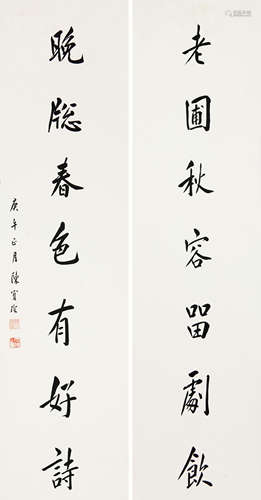 老圃秋容留劇飲
晚牎春色有好詩
庚午正月陳寶琛